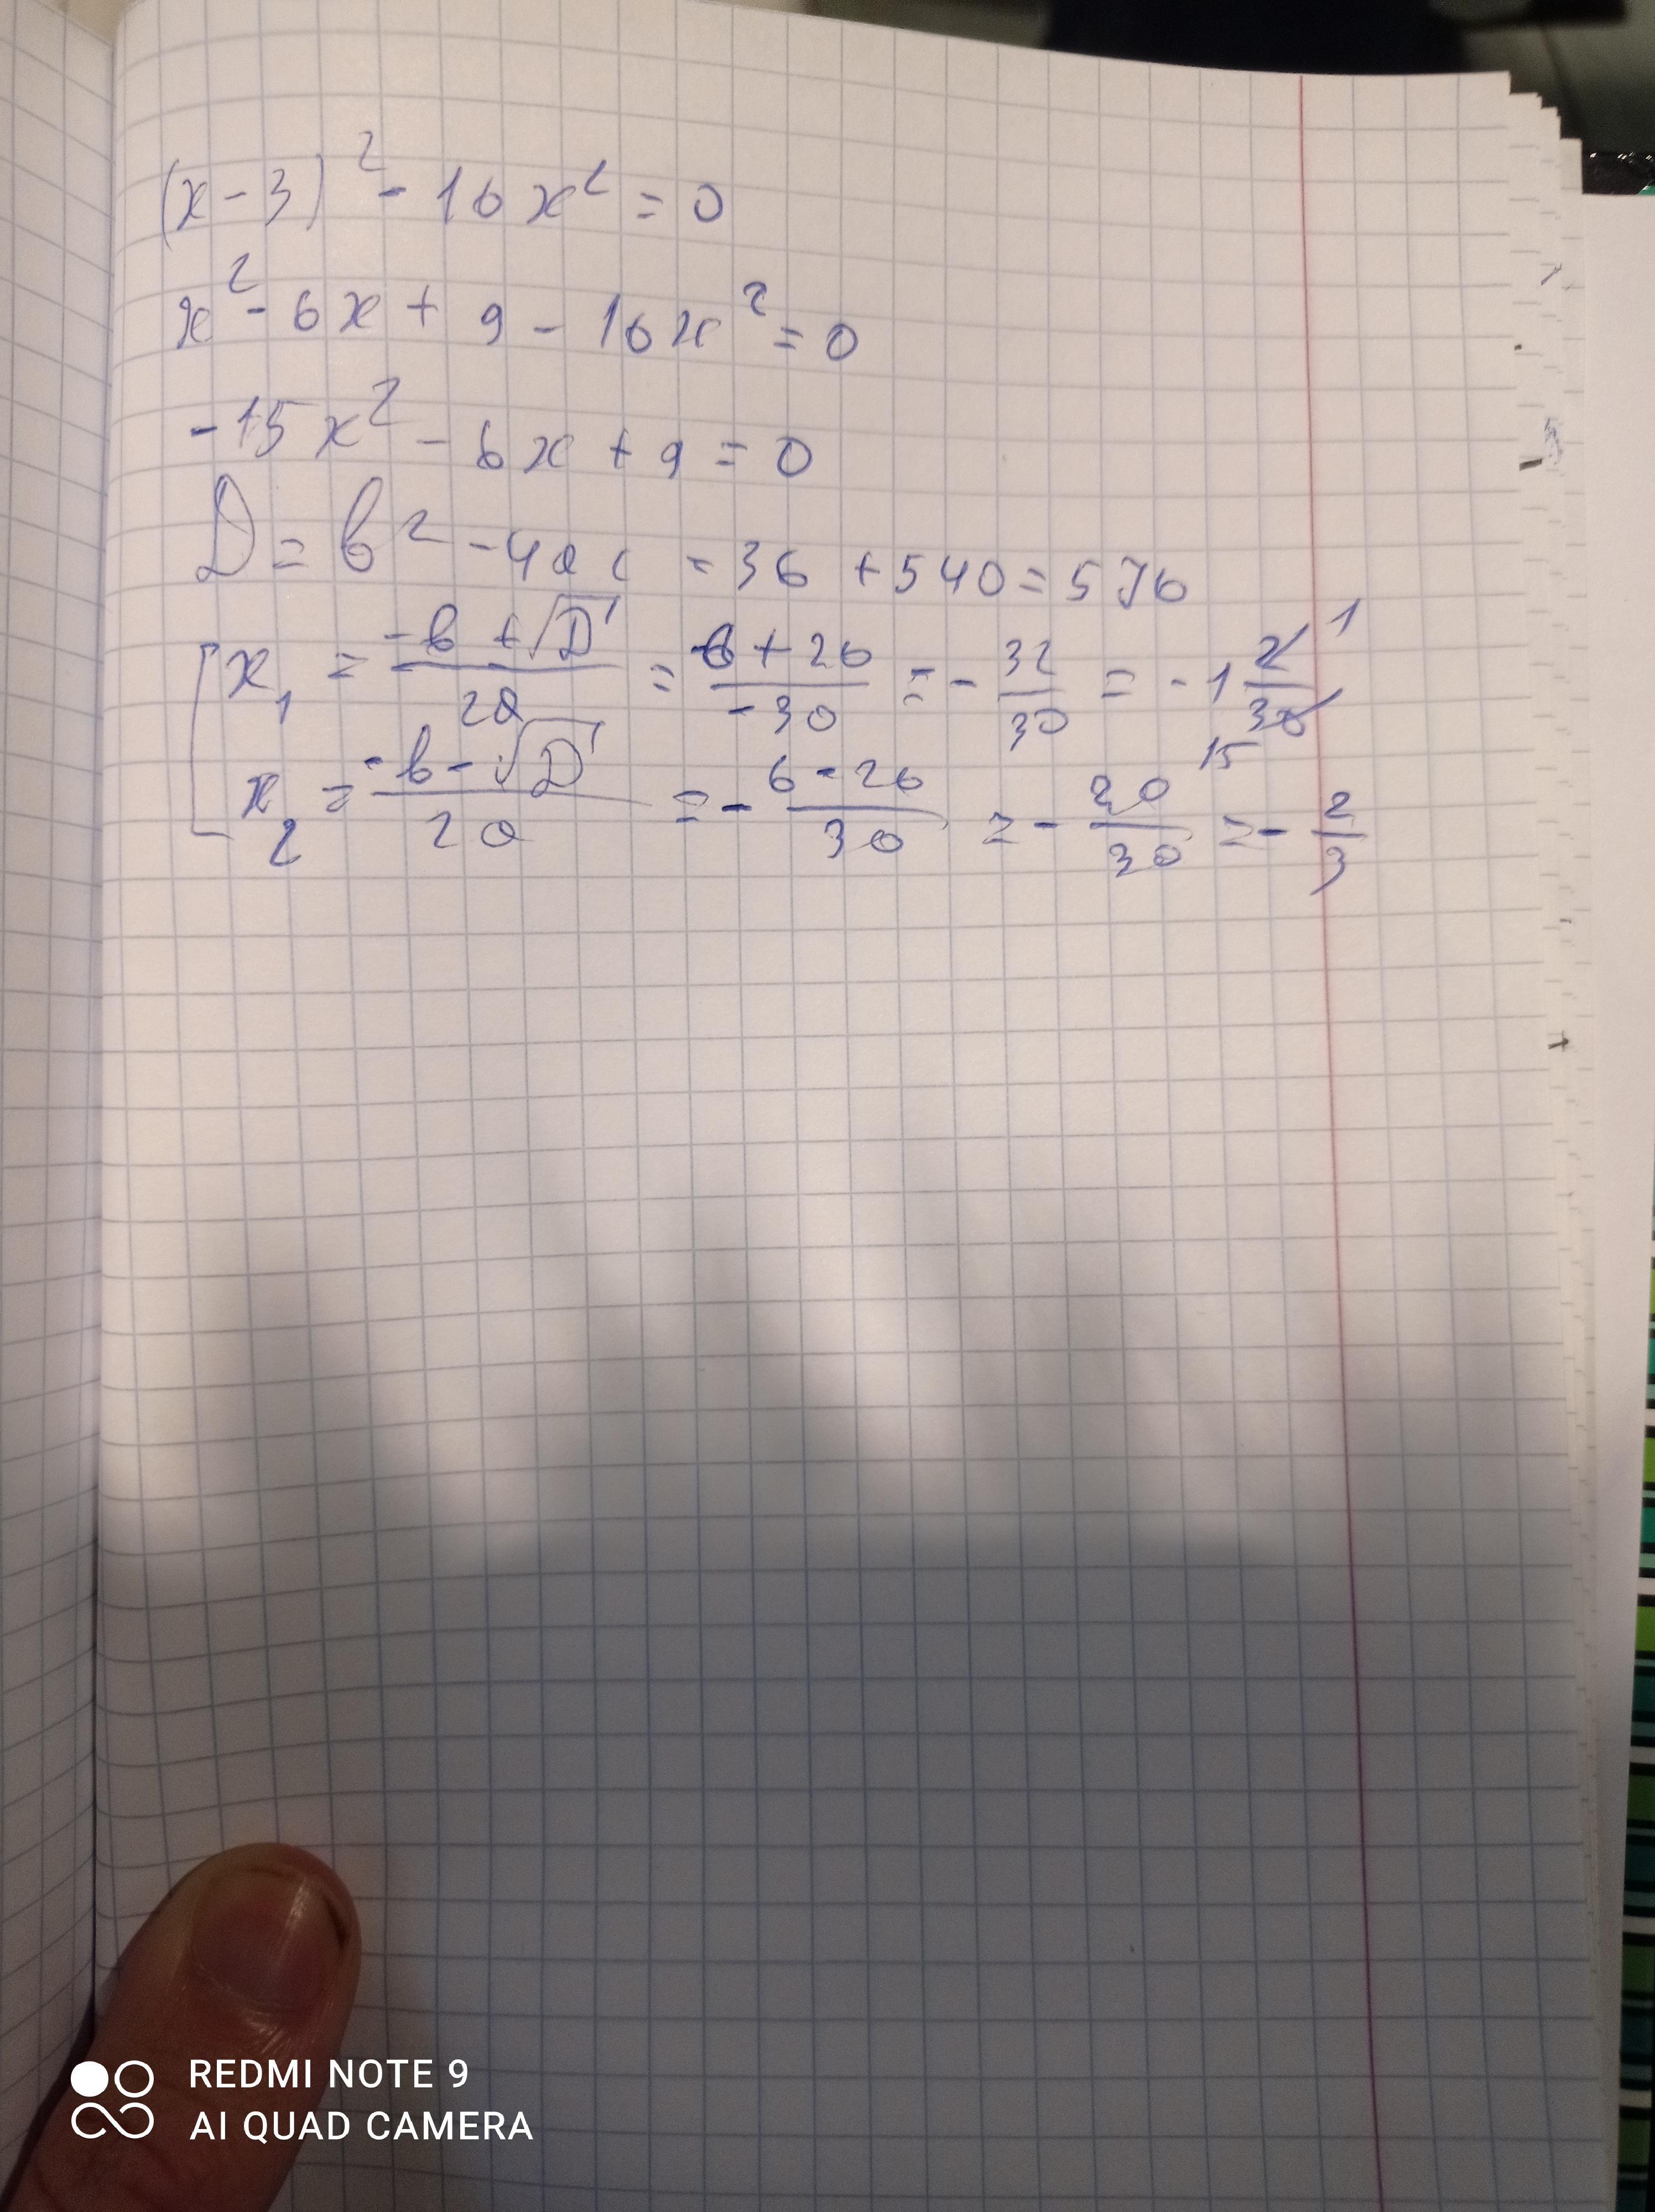 (x-3)² - 16x² = 0
x² - 6x + 9 - 16x² = 0
-15x² - 6x + 9 = 0
D = b² - 4ac = 36 + 540 = 576
x₁ = (-b + √D)/2a = (6 + 26)/-30 = - 32/30 = -1 2/30 1 15
x₂ = (-b - √D)/2a = - (6 - 26)/30 = - 20/30 = - 2/3
REDMI NOTE 9
AI QUAD CAMERA